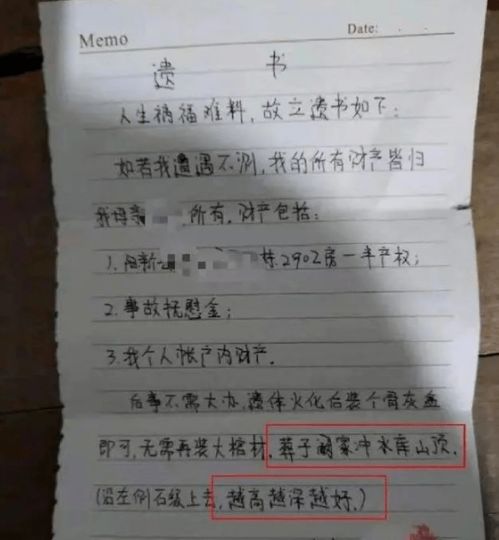 Memo Date:
遗 书
人生祸福难料，故立遗书如下：
如若我遭遇不测，我的所有财产皆归
我母亲 所有，财产包括：
1. 栋2902房一半产权；
2.事故抚慰金；
3.我个人帐户内财产.
后事不需大办，遗体火化后装个骨灰盒
即可，无需再装大棺材，葬于阚家冲水库山顶，
(沿左侧石级上去，越高越深越好.)